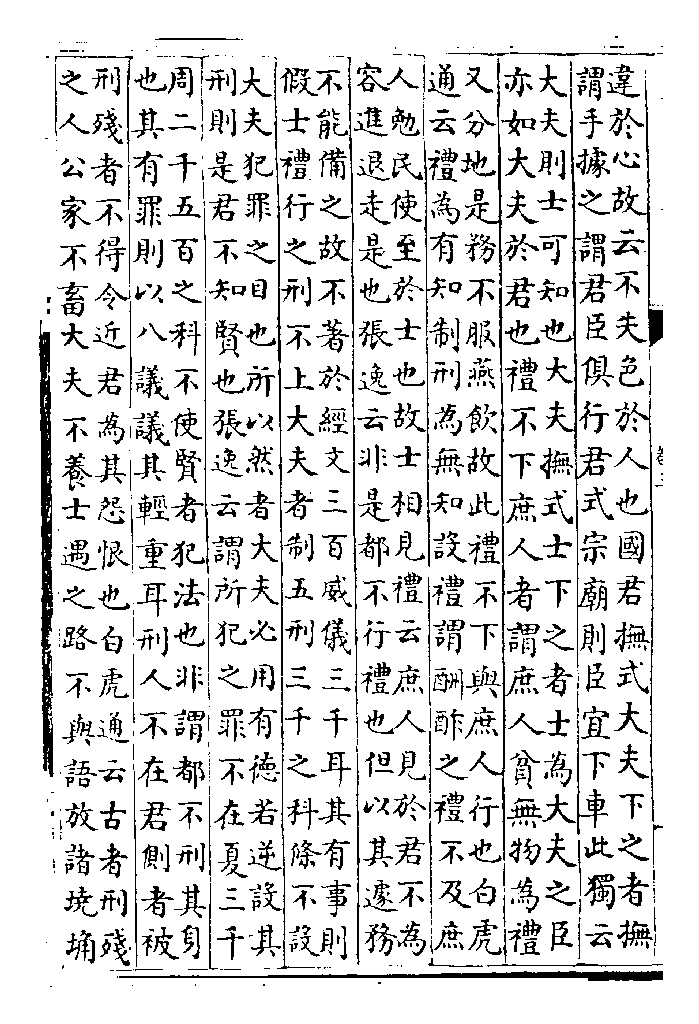 違於心故云不失色於人也國君撫式大夫下之者撫
謂手據之謂君臣俱行君式宗廟則臣宜下車此獨云
大夫則士可知也大夫撫式士下之者士為大夫之臣
亦如大夫於君也禮不下庶人者謂庶人貧無物為禮
又分地是務不服燕飲故此禮不下與庶人行也白虎
通云禮為有知制刑為無知設禮謂酬酢之禮不及庶
人勉民使至於士也故士相見禮云庶人見於君不為
容進退走是也張逸云非是都不行禮也但以其遽務
不能備之故不著於經文三百威儀三千耳其有事則
假士禮行之刑不上大夫者制五刑三千之科條不設
大夫犯罪之目也所以然者大夫必用有德若逆設其
刑則是君不知賢也張逸云謂所犯之罪不在夏三千
周二千五百之科不使賢者犯法也非謂都不刑其身
也其有罪則以八議議其輕重耳刑人不在君側者被
刑殘者不得令近君為其怨恨也白虎通云古者刑殘
之人公家不畜大夫不養士遇之路不與語放諸墝埆